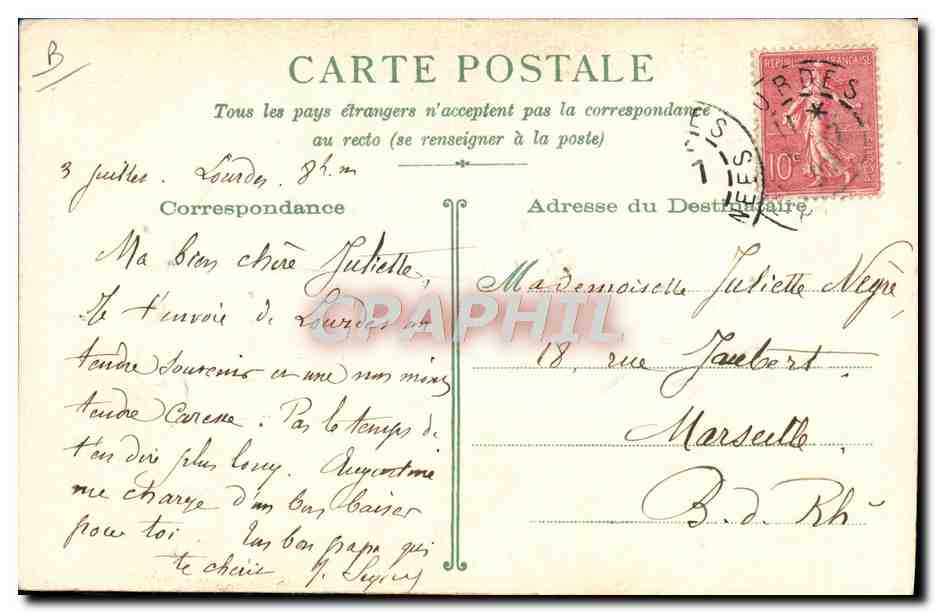 B
CARTE POSTALE
Tous les pays étrangers n'acceptent pas la correspondance
au recto (se renseigner à la poste)
REPUBLIQUE FRANÇAISE
10c
POSTES
URDES
NEES
3 juillet. Lourdes. 8h. m
Correspondance
Ma bien chère Juliette,
Je t'envoie de Lourdes un
tendre souvenir et une non moins
tendre caresse. Pas le temps de
t'en dire plus long. Augustine
me charge d'un bon baiser
pour toi. Ton bon papa qui
te chérit
Adresse du Destinataire
Mademoiselle Juliette Nègre,
18, rue Jaubert.
Marseille
B. d. Rh
CPAPHIL